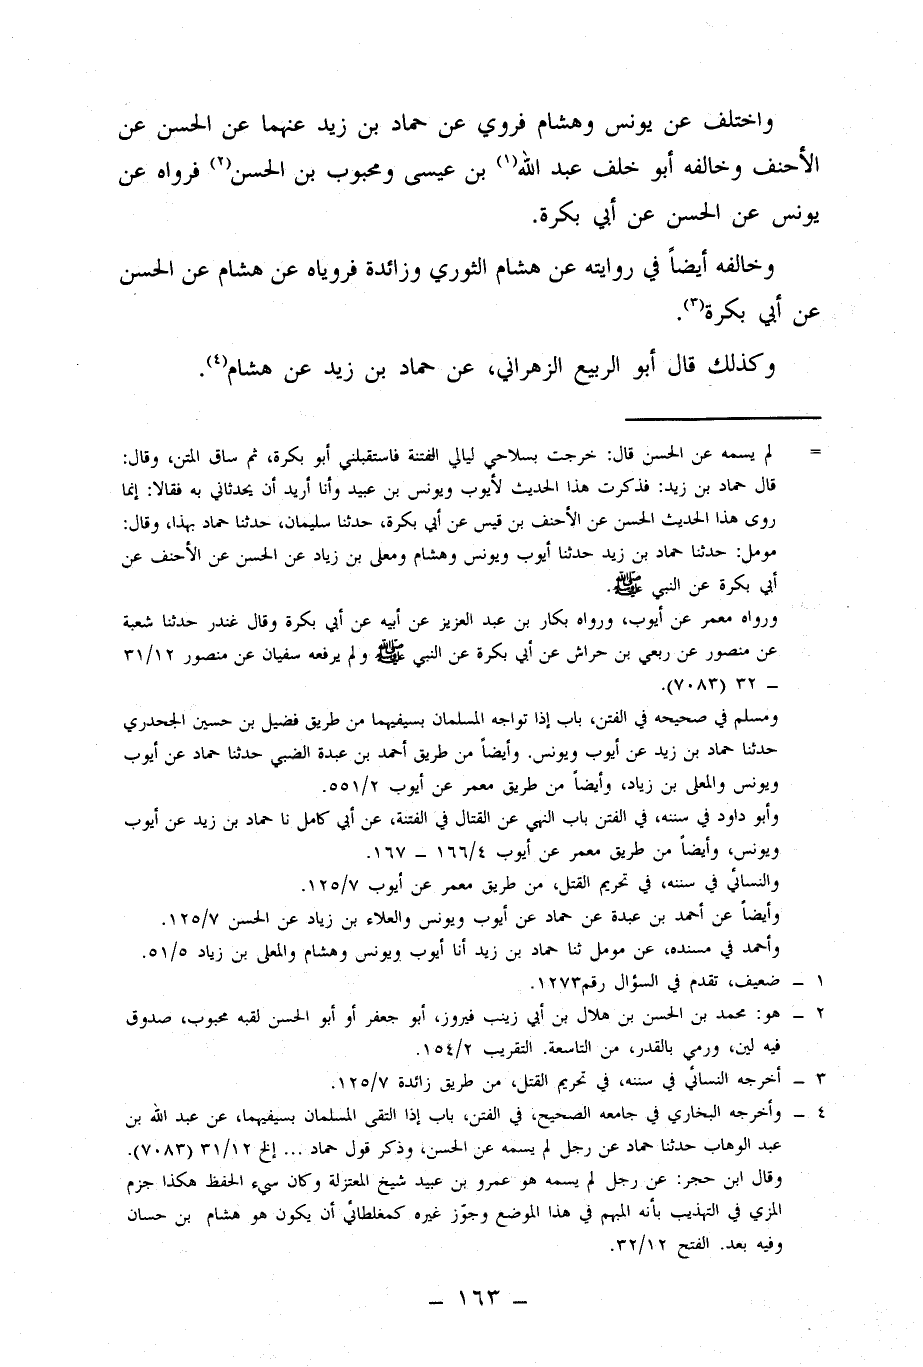 واختلف عن يونس وهشام فروي عن حماد بن زيد عنهما عن الحسن عن
الأحنف وخالفه أبو خلف عبد الله(١) بن عيسى ومحبوب بن الحسن(٢) فرواه عن
يونس عن الحسن عن أبي بكرة.
وخالفه أيضاً في روايته عن هشام الثوري وزائدة فروياه عن هشام عن الحسن
عن أبي بكرة(٣).
وكذلك قال أبو الربيع الزهراني، عن حماد بن زيد عن هشام(٤).
= لم يسمه عن الحسن قال: خرجت بسلاحي ليالي الفتنة فاستقبلني أبو بكرة، ثم ساق المتن، وقال:
قال حماد بن زيد: فذكرت هذا الحديث لأيوب ويونس بن عبيد وأنا أريد أن يحدثاني به فقالا: إنما
روى هذا الحديث الحسن عن الأحنف بن قيس عن أبي بكرة، حدثنا سليمان، حدثنا حماد بهذا، وقال:
مومل: حدثنا حماد بن زيد حدثنا أيوب ويونس وهشام ومعلى بن زياد عن الحسن عن الأحنف عن
أبي بكرة عن النبي ﷺ.
ورواه معمر عن أيوب، ورواه بكار بن عبد العزيز عن أبيه عن أبي بكرة وقال غندر حدثنا شعبة
عن منصور عن ربعي بن حراش عن أبي بكرة عن النبي ﷺ ولم يرفعه سفيان عن منصور ٣١/١٢
ــ ٣٢ (٧٠٨٣).
ومسلم في صحيحه في الفتن، باب إذا تواجه المسلمان بسيفيهما من طريق فضيل بن حسين الجحدري
حدثنا حماد بن زيد عن أيوب ويونس. وأيضاً من طريق أحمد بن عبدة الضبي حدثنا حماد عن أيوب
ويونس والمعلى بن زياد، وأيضاً من طريق معمر عن أيوب ٥٥١/٢.
وأبو داود في سننه، في الفتن باب النهي عن القتال في الفتنة، عن أبي كامل نا حماد بن زيد عن أيوب
ويونس، وأيضاً من طريق معمر عن أيوب ١٦٦/٤ ــ ١٦٧.
والنسائي في سننه، في تحريم القتل، من طريق معمر عن أيوب ١٢٥/٧.
وأيضاً عن أحمد بن عبدة عن حماد عن أيوب ويونس والعلاء بن زياد عن الحسن ١٢٥/٧.
وأحمد في مسنده، عن مومل ثنا حماد بن زيد أنا أيوب ويونس وهشام والمعلى بن زياد ٥١/٥.
١ ــ ضعيف، تقدم في السؤال رقم١٢٧٣.
٢ ــ هو: محمد بن الحسن بن هلال بن أبي زينب فيروز، أبو جعفر أو أبو الحسن لقبه محبوب، صدوق
فيه لين، ورمي بالقدر، من التاسعة. التقريب ١٥٤/٢.
٣ ــ أخرجه النسائي في سننه، في تحريم القتل، من طريق زائدة ١٢٥/٧.
٤ ــ وأخرجه البخاري في جامعه الصحيح، في الفتن، باب إذا التقى المسلمان بسيفيهما، عن عبد الله بن
عبد الوهاب حدثنا حماد عن رجل لم يسمه عن الحسن، وذكر قول حماد ... إلخ ٣١/١٢ (٧٠٨٣).
وقال ابن حجر: عن رجل لم يسمه هو عمرو بن عبيد شيخ المعتزلة وكان سيء الحفظ هكذا جزم
المزي في التهذيب بأنه المبهم في هذا الموضع وجوّز غيره كمغلطائي أن يكون هو هشام بن حسان
وفيه بعد. الفتح ٣٢/١٢.
ــ ١٦٣ ــ